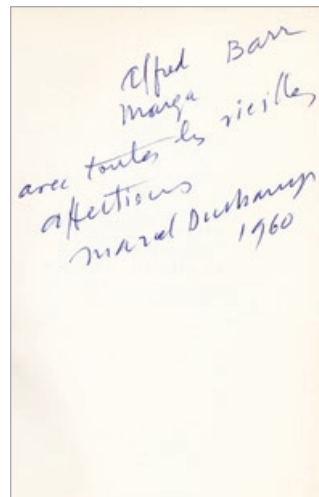 Alfred Barr
Marga
avec toutes les vieilles
affections
Marcel Duchamp
1960